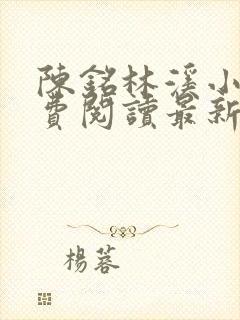 陳銘林溪小
費閱讀最新
楊蓉